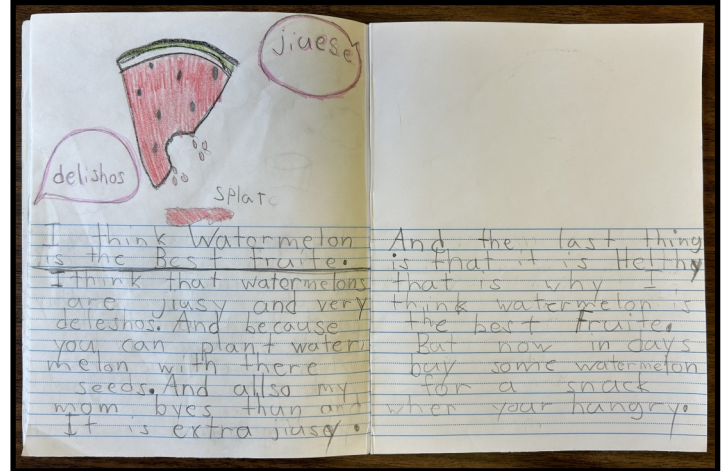 jiuese
delishos
splat
I think Watormelon
is the Best Fruite.
I think that watermelons
are jiusy and very
deleshos. And because
you can plant water
melon with there
seeds. And allso my
mom byes than and
It is extra jiusy.
And the last thing
is that it is Helthy
that is why I
think watermelon is
the best Fruite.
But now in days
buy some watermelon
for a snack
when your hangry.